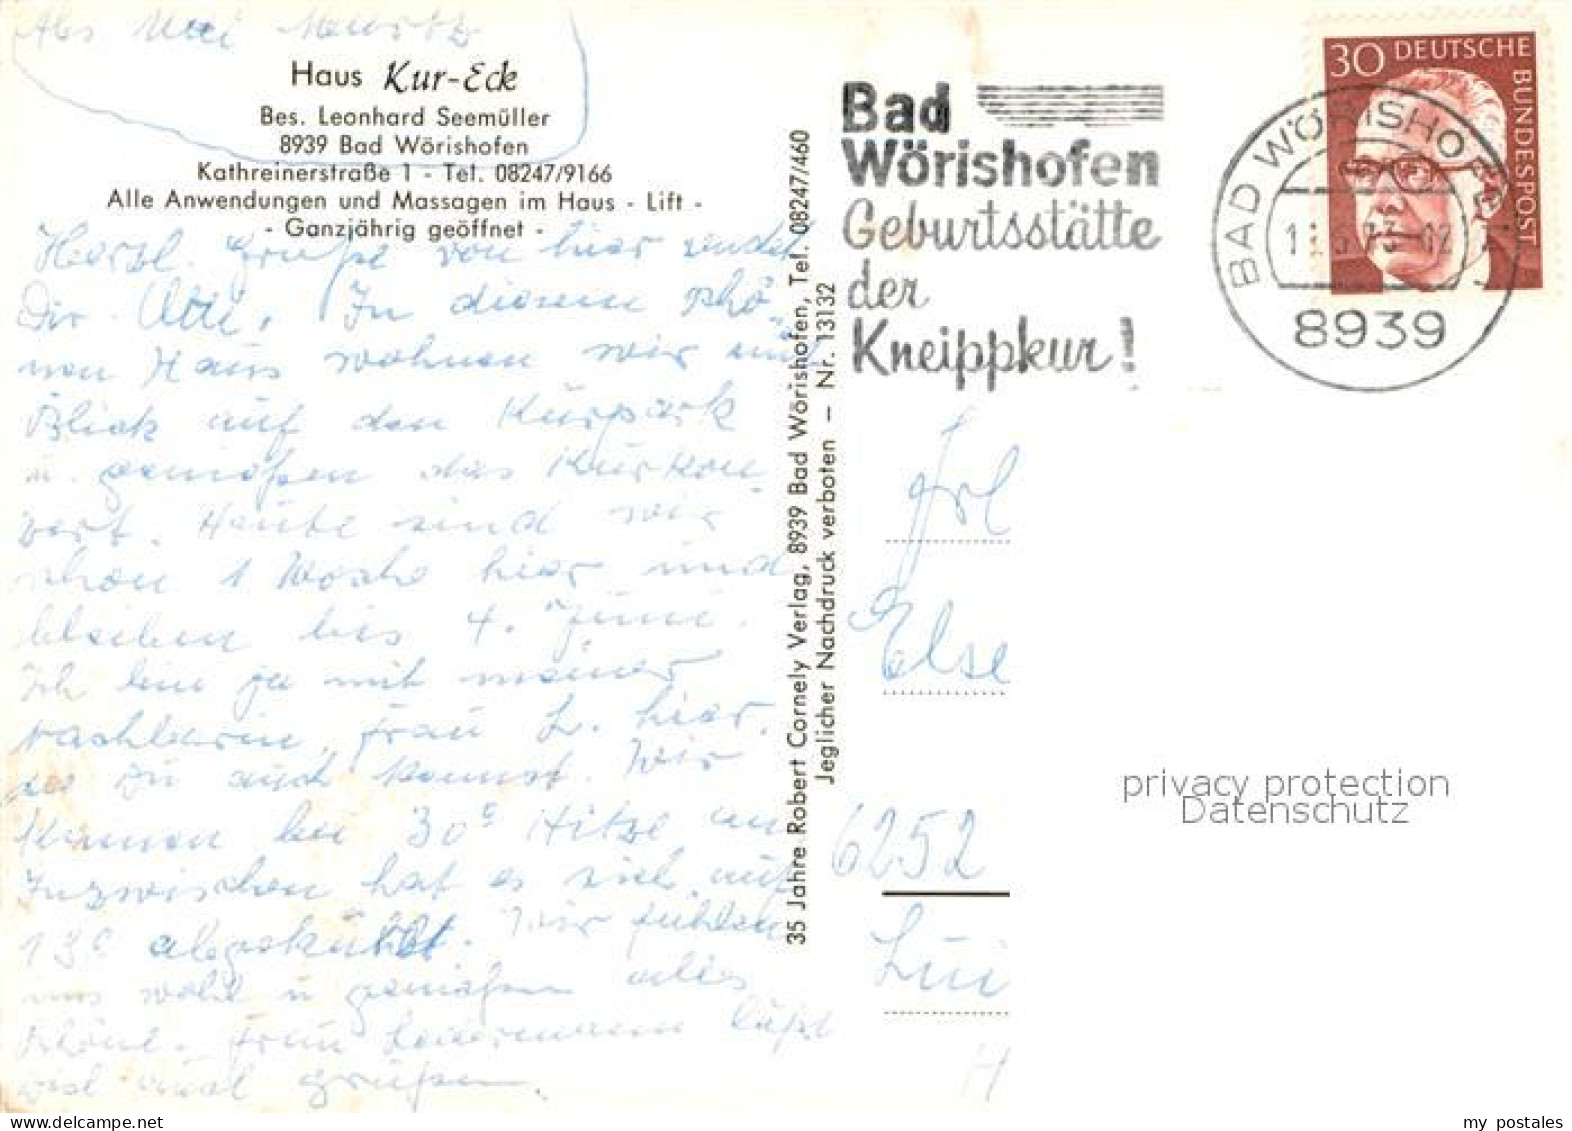 Haus Kur-Eck
Bes. Leonhard Seemüller
8939 Bad Wörishofen
Kathreinerstraße 1 - Tel. 08247/9166
Alle Anwendungen und Massagen im Haus - Lift -
- Ganzjährig geöffnet -
Herzl. Grüße von hier sendet
Dir In diesem schö-
nen Haus wohnen wir mit
Blick auf den Kurpark
u. genießen das Kurkon-
zert. Heute sind wir
schon 1 Woche hier und
bleiben bis 4. Juni.
Ich bin ja mit meiner
Nachbarin, Frau L. hier.
Du auch kennst. Wir
kamen bei 30° Hitze an
Inzwischen hat es sich auf
13° abgekühlt. Wir fühlen
uns wohl u genießen alles
schöne. Frau läßt
viel mal grüßen.
35 Jahre Robert Cornely Verlag, 8939 Bad Wörishofen, Tel. 08247/460
Jeglicher Nachdruck verboten — Nr. 13132
Bad
Wörishofen
Geburtsstätte
der
Kneippkur!
BAD WÖRISHOFEN
8939
30 DEUTSCHE
BUNDESPOST
Frl
Else
6252
privacy protection
Datenschutz
my postales